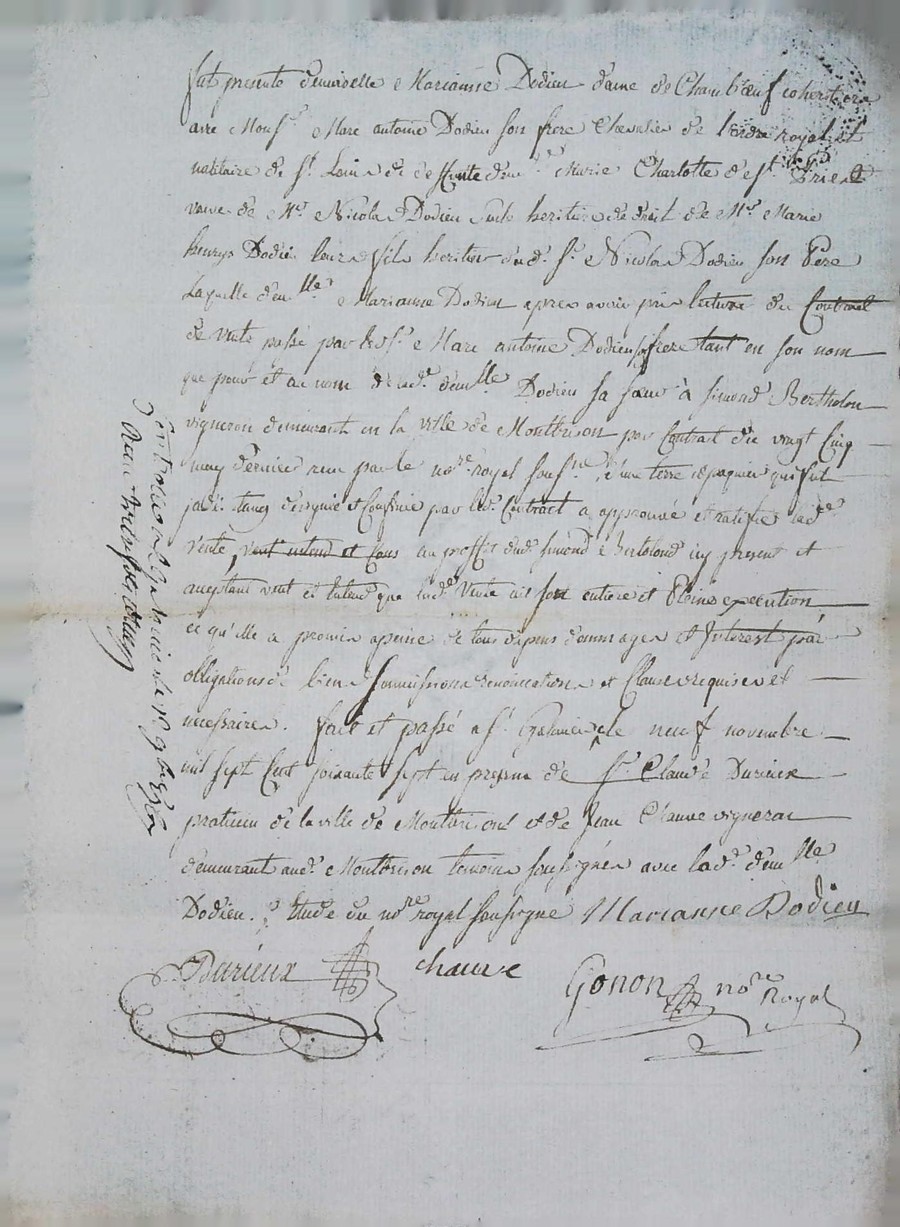 fut presente demoiselle Marianne Dodieu dame de Chamboeuf coheritiere
avec Monsr. Marc antoine Dodieu son frere Chevalier de l'ordre royal et
militaire de St. Louis de defunte dem. Marie Charlotte de St. Priest
veuve de Mr. Nicolas Dodieu seule heritiere de droit de Mr. Marie
henrys Dodieu leur fils heritier dud. Sr. Nicolas Dodieu son Pere
Laquelle demlle. Marianne Dodieu apres avoir pris lecture du Contrat
de vente passé par led. Sr. Marc antoine Dodieu son frere tant en son nom
que pour et au nom de lad. demlle Dodieu sa soeur à simond Bertholon
vigneron demeurant en la ville de Montbrison par Contrat du vingt Cinq
may dernier recu par le nore. royal sousne. d'une terre qui fut
jadis designé et Confiné par led. Contract a approuvé et ratifié lad.
vente, veut entend et au proffit dud. simond Bertholond icy present et
acceptant veut et entend que lad. vente ait son entiere et Pleine execution
ce qu'elle a promis apeine de tous depens dommages et Interest par
obligations de biens soumissions renonciations et Clauses requises et
necessaires. fait et passé a St. Galmier le neuf novembre
mil sept Cent soixante sept en presence de Sr. Claude Durieux
praticien de la ville de Montbrison et de Jean Chauve vigneron
demeurant aud. Montbrison temoins soussignés avec lad. demlle
Dodieu. Etude du nore royal soussigne Marianne Dodieu
Durieux chauve Gonon nore Royal